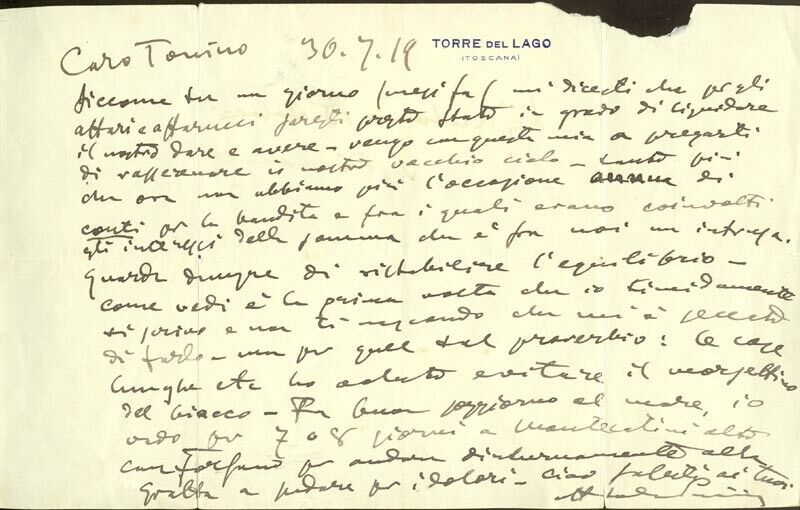 TORRE DEL LAGO
(TOSCANA)
Caro Tonino 30.7.19
Siccome tu un giorno (mesi fa) mi dicesti che per gli
affari e affarucci saresti presto stato in grado di liquidare
il nostro dare e avere – vengo con questa mia a pregarti
di rasserenare il nostro vecchio cielo – tanto più
che ora non abbiamo più l'occasione annua di
conti per la bandita e fra i quali erano coinvolti
gli interessi della somma che è fra noi un intruga.
Guarda dunque di ristabilire l'equilibrio –
come vedi è la prima volta che io timidamente
ti scrivo e non ti nascondo che mi è seccato
di farlo – ma per quel tal proverbio: le cose
lunghe etc ho voluto evitare il
del – Fa buon soggiorno al mare, io
vado per 7 o 8 giorni a Montecatini alto
con Forzano per andare diurnamente alla
grotta a sudare per i dolori – ciao saluti ai tuoi